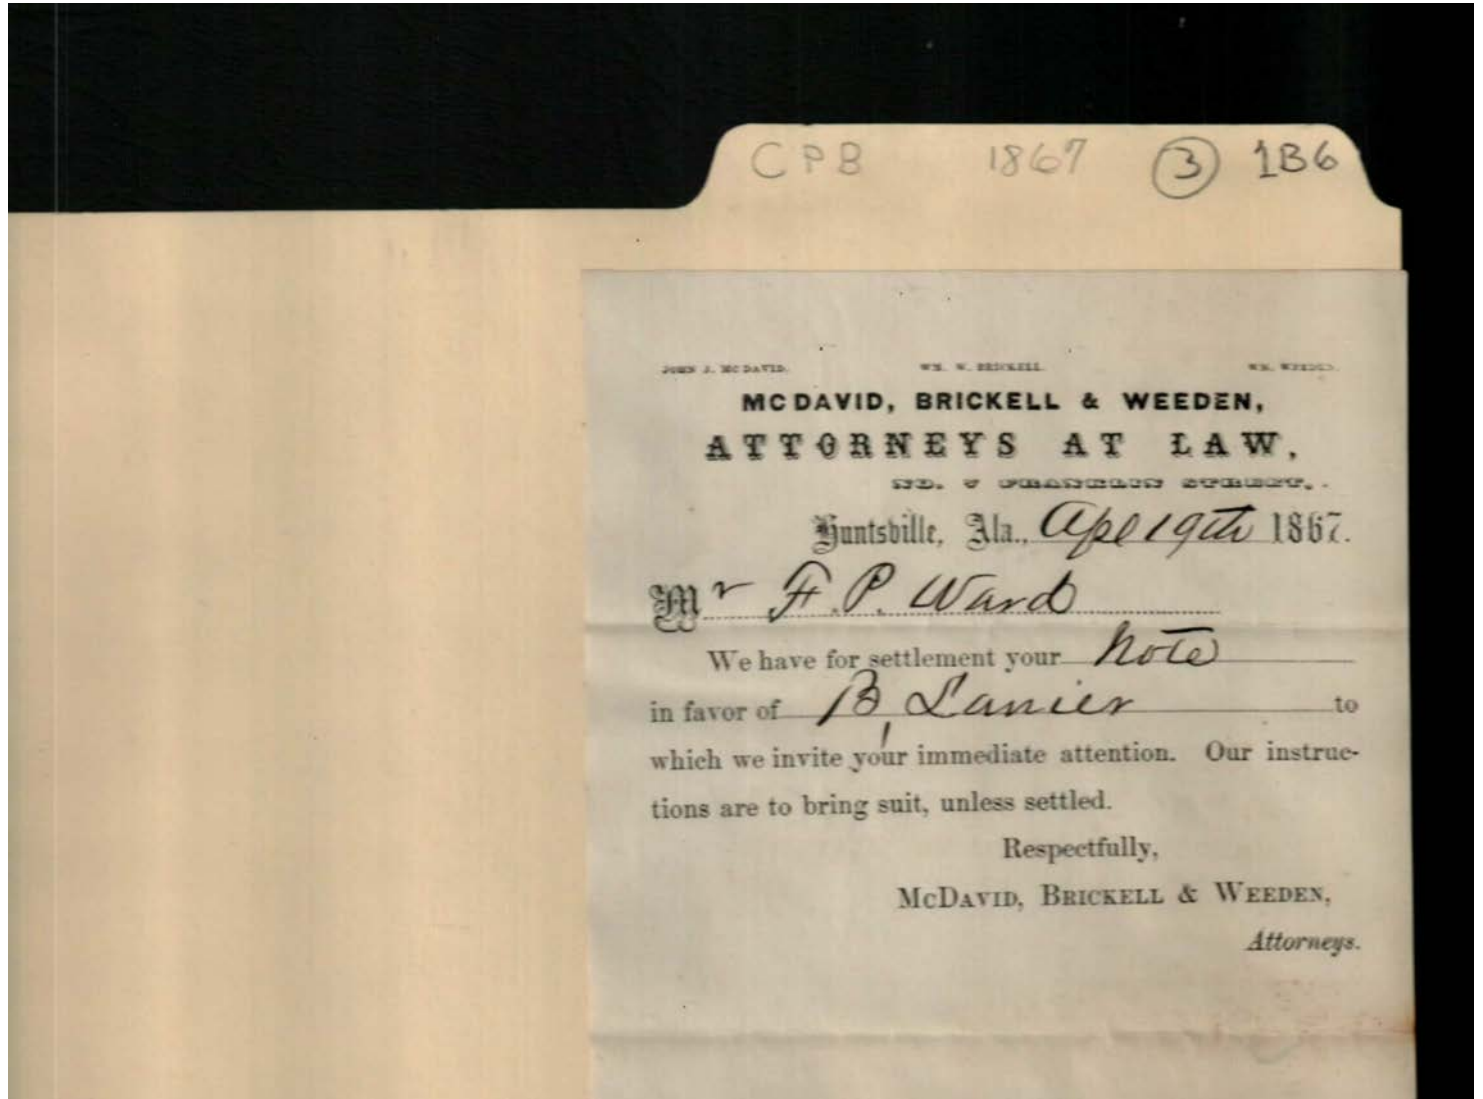 CPB 1867 3 1B6
JOHN J. MCDAVID. WM. W. BRICKELL. WM. WEEDEN.
MCDAVID, BRICKELL & WEEDEN,
ATTORNEYS AT LAW,
NO. FRANKLIN STREET,
Huntsville, Ala., Apl 19th 1867.
Mr F. P. Ward
We have for settlement your Note
in favor of B, Lanier to
which we invite your immediate attention. Our instruc-
tions are to bring suit, unless settled.
Respectfully,
MCDAVID, BRICKELL & WEEDEN,
Attorneys.